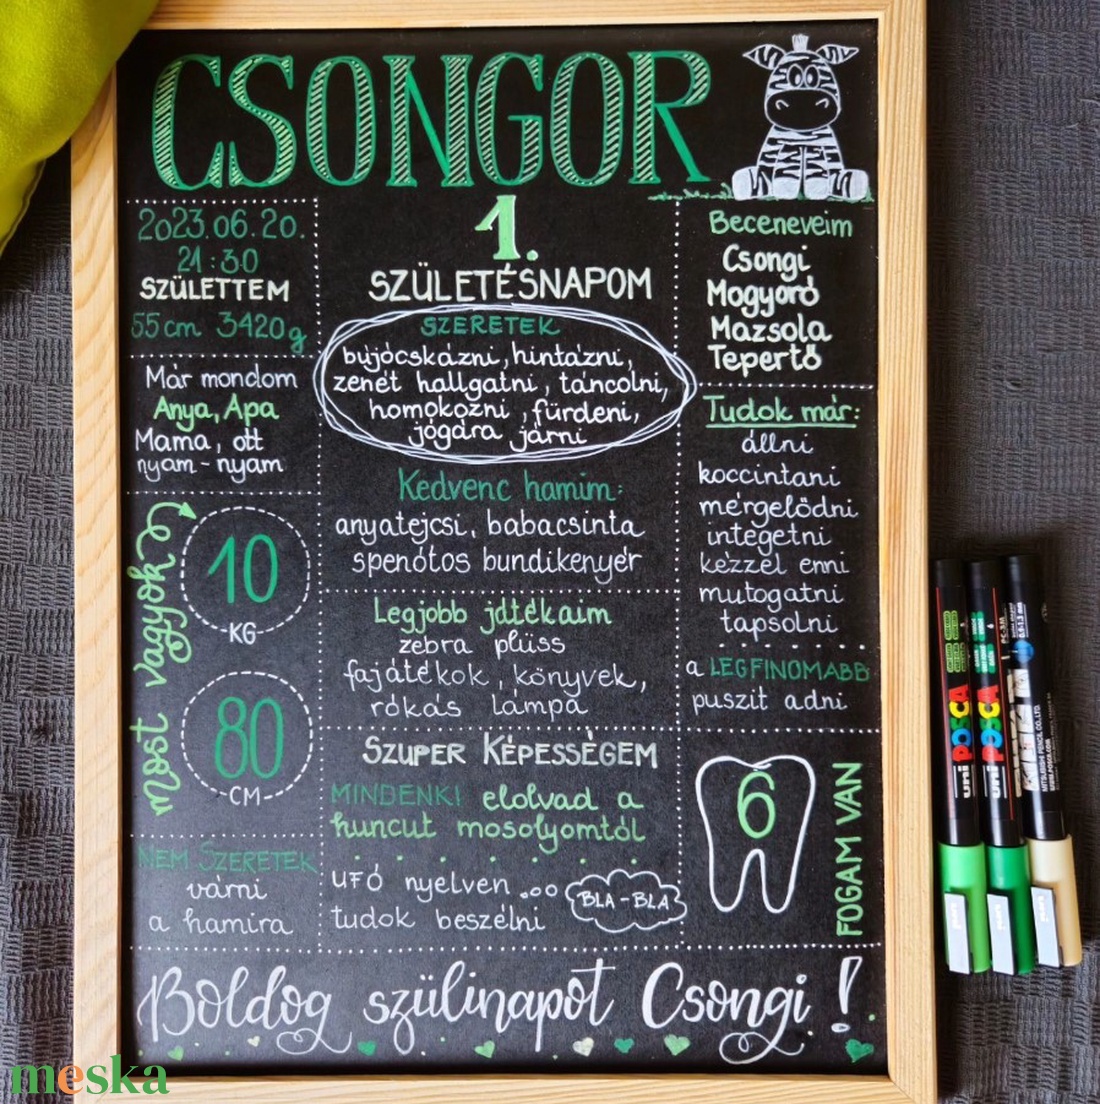 CSONGOR
2023.06.20.
21:30
SZÜLETTEM
55cm 3420g
Már mondom
Anya, Apa
Mama, ott
nyam-nyam
most vagyok
10
KG
80
CM
NEM SZERETEK
várni
a hamira
1.
SZÜLETÉSNAPOM
SZERETEK
bújócskázni, hintázni,
zenét hallgatni, táncolni,
homokozni, fürdeni,
jógára járni
Kedvenc hamim:
anyatejcsi, babacsinta
spenótos bundikenyér
Legjobb játékaim
zebra plüss
fajátékok, könyvek,
rókás lámpa
SZUPER KÉPESSÉGEM
MINDENKI elolvad a
huncut mosolyomtól
UFÓ nyelven ...
tudok beszélni
BLA-BLA
Beceneveim
Csongi
Mogyoró
Mazsola
Tepertő
Tudok már:
állni
koccintani
mérgelődni
integetni
kézzel enni
mutogatni
tapsolni
a LEGFINOMABB
puszit adni
6
FOGAM VAN
Boldog szülinapot Csongi!
uni POSCA
uni POSCA
meska